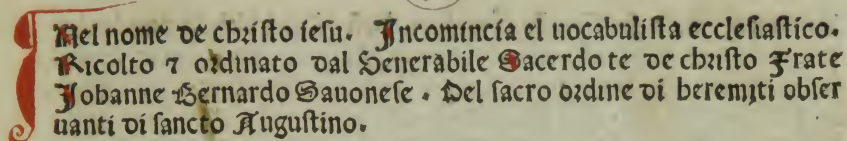 INel nome de christo iesu. Incomincia el uocabulista ecclesiastico.
Ricolto ⁊ ordinato dal Uenerabile Sacerdo te de christo Frate
Johanne Bernardo Sauonese. Del sacro ordine di heremiti obser
uanti di sancto Augustino.